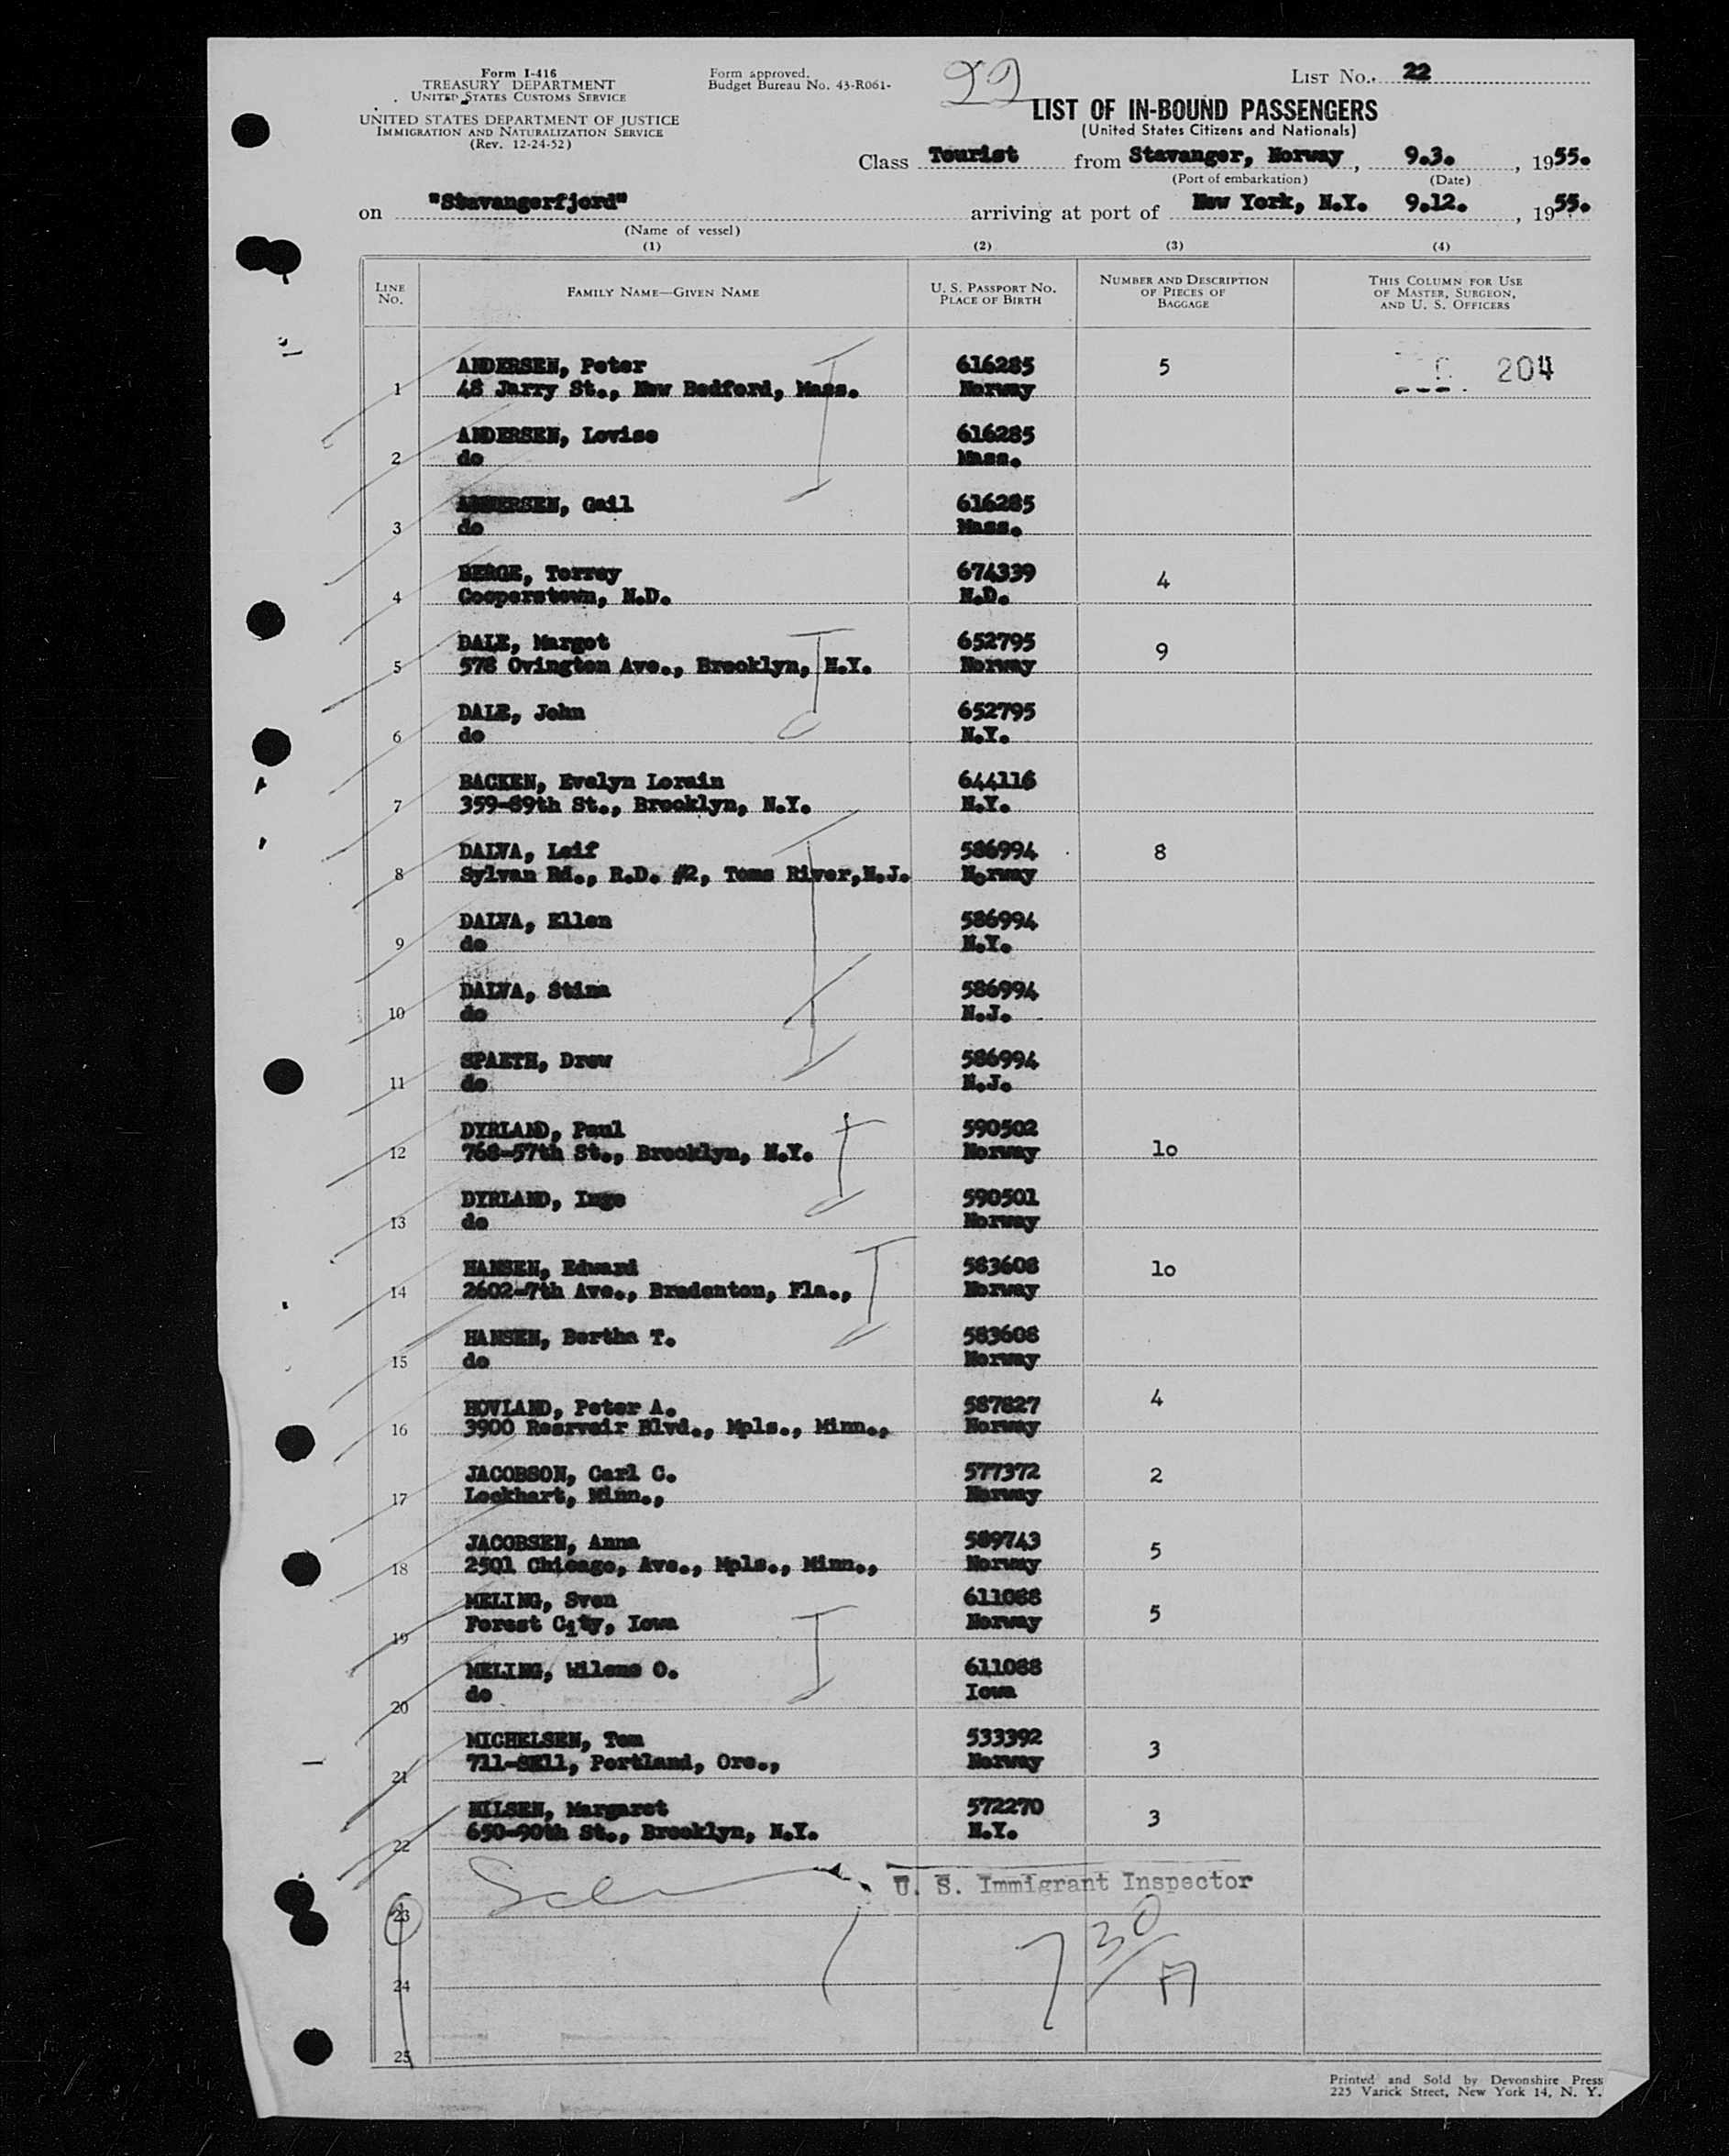 Form I-416
TREASURY DEPARTMENT
UNITED STATES CUSTOMS SERVICE
UNITED STATES DEPARTMENT OF JUSTICE
IMMIGRATION AND NATURALIZATION SERVICE
(Rev. 12-24-52)
Form approved.
Budget Bureau No. 43-R061-
22
LIST No. 22
LIST OF IN-BOUND PASSENGERS
(United States Citizens and Nationals)
Class Tourist from Stavanger, Norway, 9.3., 1955.
(Port of embarkation) (Date)
on "Stavangerfjord" arriving at port of New York, N.Y. 9.12., 1955.
(Name of vessel)
(1) (2) (3) (4)
LINE NO. FAMILY NAME—GIVEN NAME U. S. PASSPORT NO. PLACE OF BIRTH NUMBER AND DESCRIPTION OF PIECES OF BAGGAGE THIS COLUMN FOR USE OF MASTER, SURGEON, AND U. S. OFFICERS
ANDERSEN, Peter 616285 5 204
1 48 Jarry St., New Bedford, Mass. Norway
ANDERSEN, Lovise 616285
2 do Mass.
ANDERSEN, Gail 616285
3 do Mass.
BERGE, Torrey 674339 4
4 Cooperstown, N.D. N.D.
DALE, Margot 652795 9
5 578 Ovington Ave., Brooklyn, N.Y. Norway
DALE, John 652795
6 do N.Y.
BACKEN, Evelyn Lorain 644116
7 359-89th St., Brooklyn, N.Y. N.Y.
DALVA, Leif 586994 8
8 Sylvan Rd., R.D. #2, Toms River,N.J. Norway
DALVA, Ellen 586994
9 do N.Y.
DALVA, Stina 586994
10 do N.J.
SPAETH, Drew 586994
11 do N.J.
DYRLAND, Paul 590502
12 768-57th St., Brooklyn, N.Y. Norway 10
DYRLAND, Inge 590501
13 do Norway
HANSEN, Edward 583608 10
14 2602-7th Ave., Bradenton, Fla., Norway
HANSEN, Bertha T. 583608
15 do Norway
HOVLAND, Peter A. 587827 4
16 3900 Reservoir Blvd., Mpls., Minn., Norway
JACOBSON, Carl C. 577372 2
17 Lockhart, Minn., Norway
JACOBSEN, Anna 589743 5
18 2501 Chicago, Ave., Mpls., Minn., Norway
MELING, Sven 611088 5
19 Forest City, Iowa Norway
MELING, Wilene O. 611088
20 do Iowa
MICHELSEN, Tom 533392 3
21 711-SE11, Portland, Ore., Norway
NILSEN, Margaret 572270 3
22 650-90th St., Brooklyn, N.Y. N.Y.
U. S. Immigrant Inspector
23
7 30/A
24
25
Printed and Sold by Devonshire Press
225 Varick Street, New York 14, N. Y.